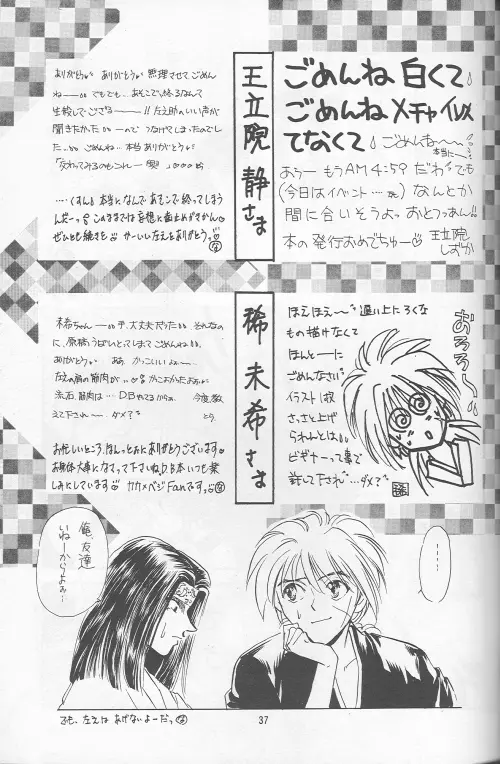 王立院 静さま
ごめんね 白くて
ごめんね メチャイソメ
てなくて
ごめんね〜〜
本当に
あうー もうAM4:59 だわ でも
(今日はイベント…) なんとか
間に合いそうよっ おとっつあん!!
本の発行おめでちゅー♡
王立院
しずか
ありがとう ありがとう 無理させてごめん
ね
でもでも、あそこで終るなんて
生殺しでござる〜!! 左之助のいい声が
聞きたかった
ので つなげてしまったのでし
た
ごめんね… 本当ありがとう
…くすん 本当に、なんで あそこで 終ってしまう
んだーっ このままでは妄想に歯止めがきかん
ぜひとも続きを かーいい左えをありがとうっ
稀 未希さま
ほえほえ〜 遅い上にろくな
もの描けなくて
ほんとーに
ごめんなさい
イラスト1枚
さっさと上げ
られんとは
ビギナーって事で
許して下され…ダメ?
おろろ〜ん
未希ちゃん
大丈夫だった
それなの
に、原稿うばいとってしまってごめんね
ありがとう
かっこいいよぉー
左えの肩の筋肉が
かっこよかったよぉ
流石、筋肉は… DBやってるからね
今度、教
えて下されー ダメ?
お忙しいところ、ほんっとおにありがとうございます
お身体大事になさって下さいね D.B本 いつも楽
しみにしています カカ×ベジFanですっ
俺、友達
いねーからよぉ…
……
でも、左えは あげないよーだっ
37